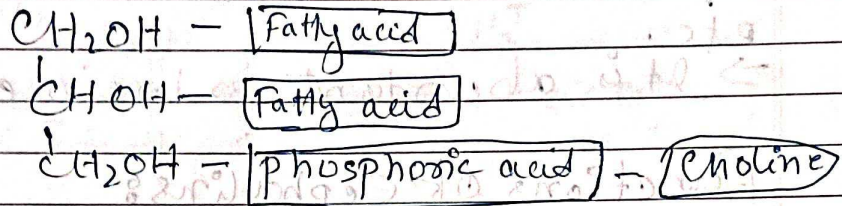 CH₂OH - Fatty acid
CHOH - Fatty acid
CH₂OH - phosphoric acid - Choline